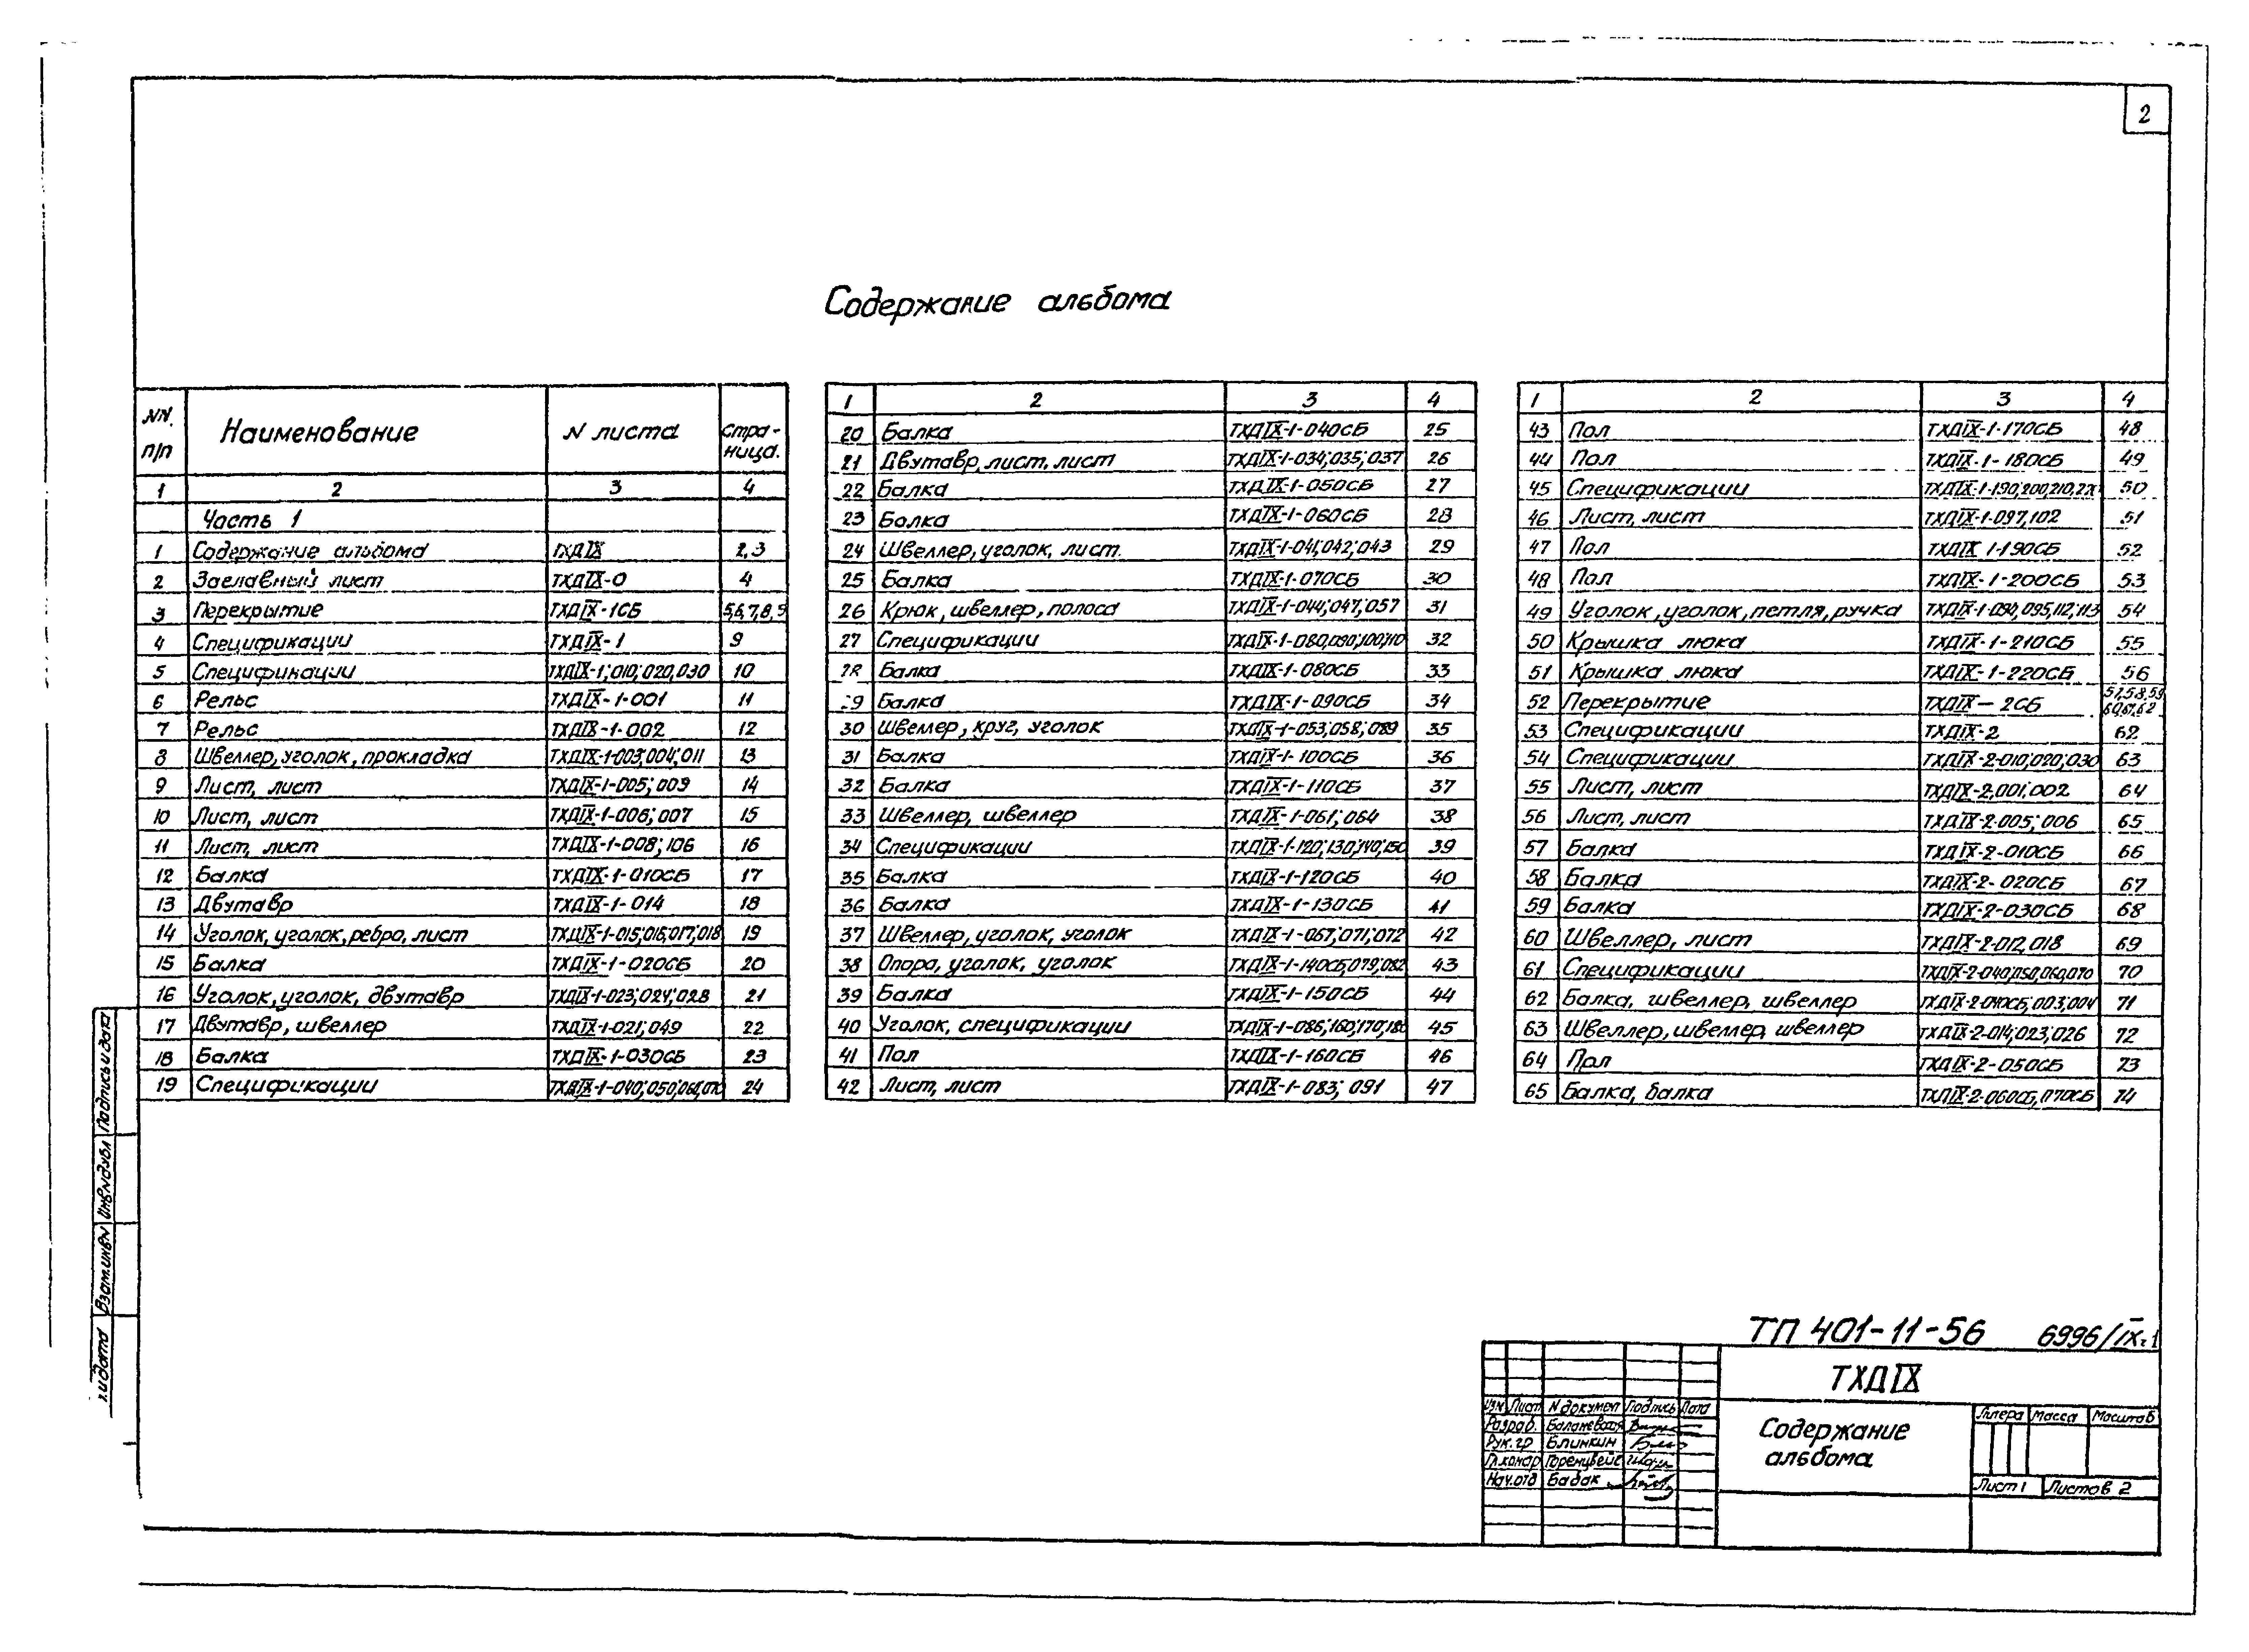 2
Содержание альбома
NN. п/п Наименование N листа Стра-ница.
1 2 3 4
Часть 1
1 Содержание альбома ТХДIX 2,3
2 Заглавный лист ТХДIX-0 4
3 Перекрытие ТХДIX-1СБ 5,6,7,8,9
4 Спецификации ТХДIX-1 9
5 Спецификации ТХДIX-1;010;020,030 10
6 Рельс ТХДIX-1-001 11
7 Рельс ТХДIX-1-002 12
8 Швеллер, уголок, прокладка ТХДIX-1-003;004;011 13
9 Лист, лист ТХДIX-1-005; 009 14
10 Лист, лист ТХДIX-1-006; 007 15
11 Лист, лист ТХДIX-1-008; 106 16
12 Балка ТХДIX-1-010СБ 17
13 Двутавр ТХДIX-1-014 18
14 Уголок, уголок, ребро, лист ТХДIX-1-015;016;017;018 19
15 Балка ТХДIX-1-020СБ 20
16 Уголок, уголок, двутавр ТХДIX-1-023;024;028 21
17 Двутавр, швеллер ТХДIX-1-021;049 22
18 Балка ТХДIX-1-030СБ 23
19 Спецификации ТХДIX-1-040;050;060,070 24
1 2 3 4
20 Балка ТХДIX-1-040СБ 25
21 Двутавр, лист, лист ТХДIX-1-034;035;037 26
22 Балка ТХДIX-1-050СБ 27
23 Балка ТХДIX-1-060СБ 28
24 Швеллер, уголок, лист. ТХДIX-1-041;042;043 29
25 Балка ТХДIX-1-070СБ 30
26 Крюк, швеллер, полоса ТХДIX-1-044;047;057 31
27 Спецификации ТХДIX-1-080,090;100;110 32
28 Балка ТХДIX-1-080СБ 33
29 Балка ТХДIX-1-090СБ 34
30 Швеллер, круг, уголок ТХДIX-1-053,058;089 35
31 Балка ТХДIX-1-100СБ 36
32 Балка ТХДIX-1-110СБ 37
33 Швеллер, швеллер ТХДIX-1-061; 064 38
34 Спецификации ТХДIX-1-120;130;140;150 39
35 Балка ТХДIX-1-120СБ 40
36 Балка ТХДIX-1-130СБ 41
37 Швеллер, уголок, уголок ТХДIX-1-067;071;072 42
38 Опора, уголок, уголок ТХДIX-1-140СБ,079,082 43
39 Балка ТХДIX-1-150СБ 44
40 Уголок, спецификации ТХДIX-1-086;160;170;180 45
41 Пол ТХДIX-1-160СБ 46
42 Лист, лист ТХДIX-1-083; 091 47
1 2 3 4
43 Пол ТХДIX-1-170СБ 48
44 Пол ТХДIX-1-180СБ 49
45 Спецификации ТХДIX-1-190;200;210, 50
46 Лист, лист ТХДIX-1-097,102 51
47 Пол ТХДIX 1-190СБ 52
48 Пол ТХДIX-1-200СБ 53
49 Уголок, уголок, петля, ручка ТХДIX-1-094,095,112,113 54
50 Крышка люка ТХДIX-1-210СБ 55
51 Крышка люка ТХДIX-1-220СБ 56
52 Перекрытие ТХДIX-2СБ 57,58,59 60,61,62
53 Спецификации ТХДIX-2 62
54 Спецификации ТХДIX-2-010;020;030 63
55 Лист, лист ТХДIX-2,001;002 64
56 Лист, лист ТХДIX-2-005; 006 65
57 Балка ТХДIX-2-010СБ 66
58 Балка ТХДIX-2-020СБ 67
59 Балка ТХДIX-2-030СБ 68
60 Швеллер, лист ТХДIX-2-012,018 69
61 Спецификации ТХДIX-2-040,050,060,070 70
62 Балка, швеллер, швеллер ТХДIX-2-040СБ,003,004 71
63 Швеллер, швеллер, швеллер ТХДIX-2-014,023,026 72
64 Пол ТХДIX-2-050СБ 73
65 Балка, балка ТХДIX-2-060СБ,070СБ 74
Подпись и дата
Инв N дубл
Взам.инв N
и дата
ТП 401-11-56 6996/IXч.1
ТХДIX
Изм Лист N документ Подпись Дата
Разраб.
Рук.гр Блинкин
Гл.констр
Нач.отд Бабак
Содержание
альбома
Литера Масса Масштаб
Лист 1 Листов 2